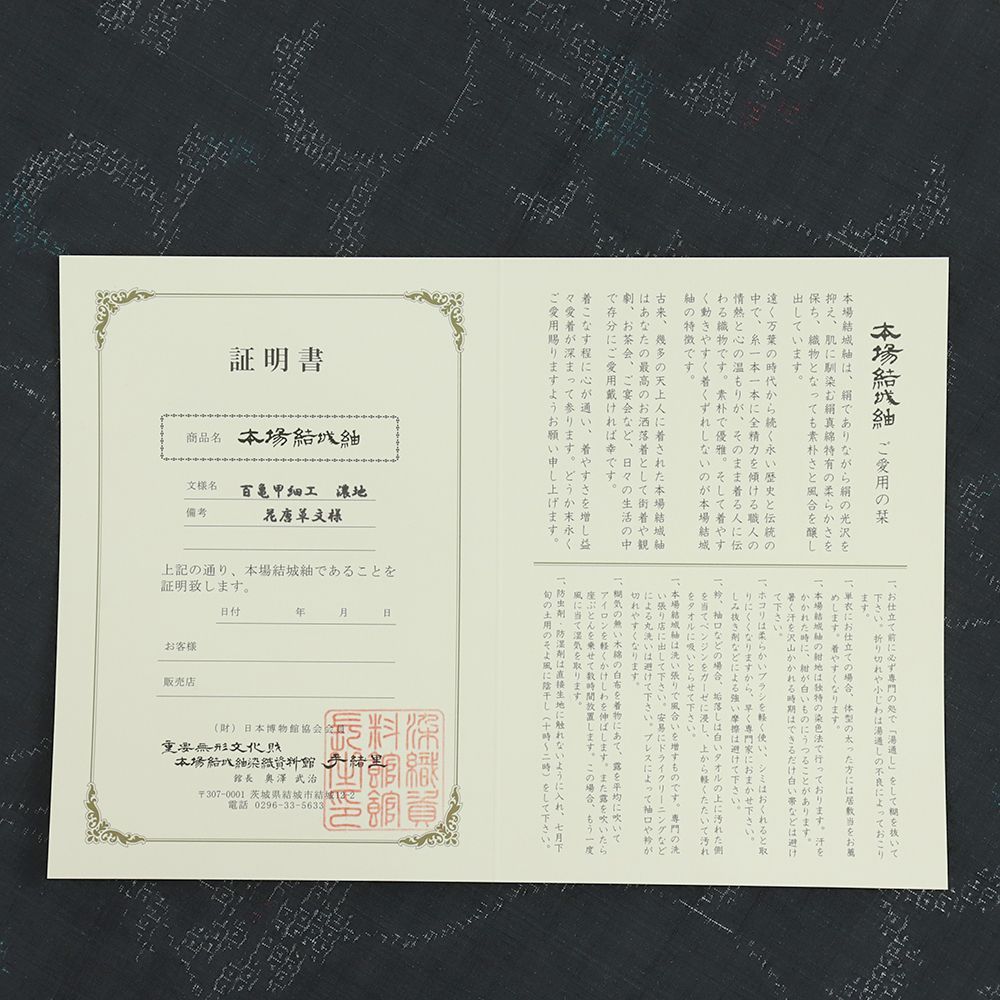 証明書
商品名 本場結城紬
文様名 百亀甲細工 濃地
備考 花唐草文様
上記の通り、本場結城紬であることを
証明致します。
日付 年 月 日
お客様
販売店
(財)日本博物館協会会員
重要無形文化財
本場結城紬染織資料館 手結里
館長 奥澤武治
〒307-0001 茨城県結城市結城12-2
電話 0296-33-5633
染織資
料館館
長之印
本場結城紬 ご愛用の栞
本場結城紬は、絹でありながら絹の光沢を
抑え、肌に馴染む絹真綿特有の柔らかさを
保ち、織物となっても素朴さと風合を醸し
出しています。
遠く万葉の時代から続く永い歴史と伝統の
中で、糸一本一本に全精力を傾ける職人の
情熱と心の温もりが、そのまま着る人に伝
わる織物です。素朴で優雅。そして着やす
く動きやすく着くずれしないのが本場結城
紬の特徴です。
古来、幾多の天上人に着された本場結城紬
はあなたの最高のお洒落着として街着や観
劇、お茶会、ご宴会など、日々の生活の中
で存分にご愛用戴ければ幸です。
着こなす程に心が通い、着やすさを増し益
々愛着が深まって参ります。どうか末永く
ご愛用賜りますようお願い申し上げます。
一、お仕立て前に必ず専門の処で「湯通し」をして糊を抜いて
下さい。折り切れや小じわは湯通しの不良によっておこり
ます。
一、単衣にお仕立ての場合、体型の太った方には居敷当をお薦
めします。着やすくなります。
一、本場結城紬の紺地は独特の染色法で行っております。汗を
かかれた時に、紺が白いものにうつることがあります。
暑く汗を沢山かかれる時期はできるだけ白い帯などは避け
て下さい。
一、ホコリは柔らかいブラシを軽く使い、シミはおくれると取
りにくくなりますから、早く専門家におまかせ下さい。
しみ抜き剤などによる強い摩擦は避けて下さい。
一、衿、袖口などの場合、垢落しは白いタオルの上に汚れた側
を当てベンジンをガーゼに浸し、上から軽くたたいて汚れ
をタオルに吸いとらせて下さい。
一、本場結城紬は洗い張りで風合いを増すものです。専門の洗
い張り店に出して下さい。安易にドライクリーニングなど
による丸洗いは避けて下さい。プレスによって袖口や衿が
切れやすくなります。
一、糊気の無い木綿の白布を着物にあて、露を平均に吹いて
アイロンを軽くかけしわを伸ばします。また露を吹いたら
座ぶとんを乗せて数時間放置します。この場合、もう一度
風に当て湿気を取ります。
一、防虫剤・防湿剤は直接生地に触れないように入れ、七月下
旬の土用のそよ風に陰干し(十時~二時)をして下さい。